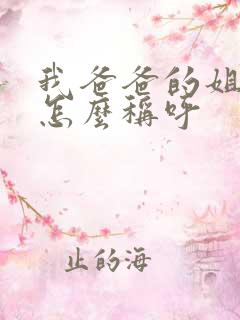 我爸爸的姐
怎麼稱呼
止的海